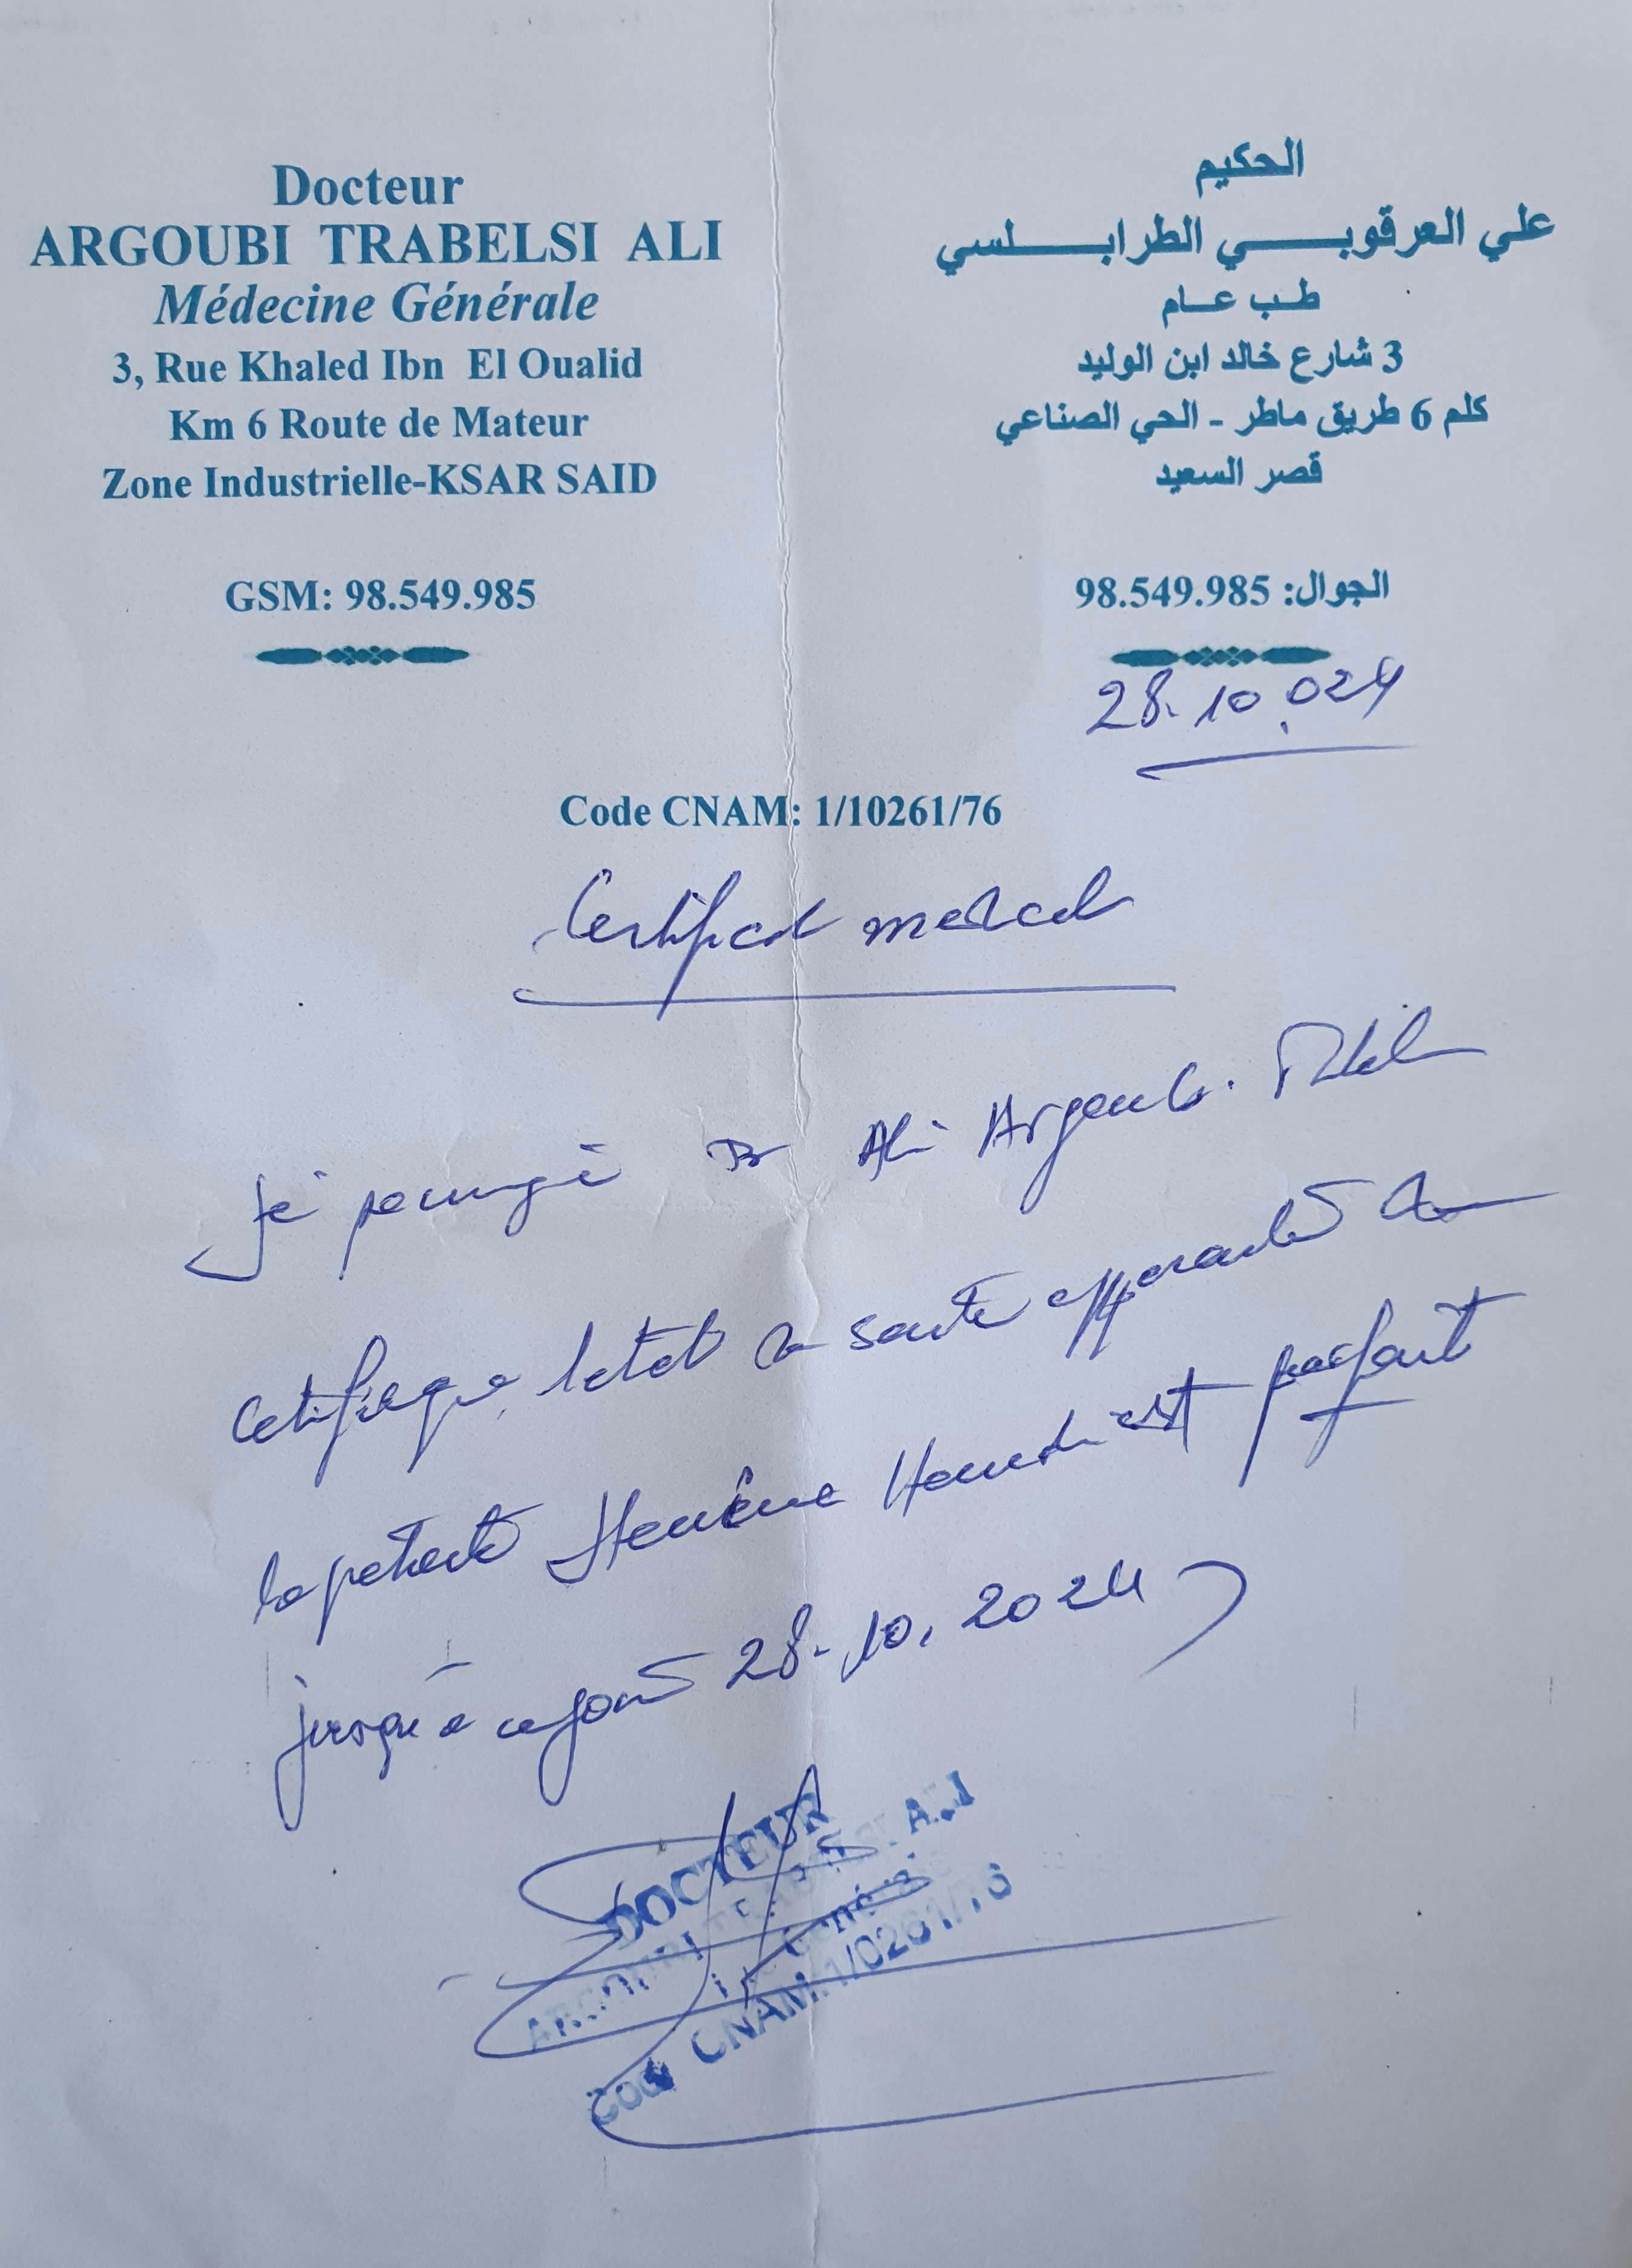 Docteur
ARGOUBI TRABELSI ALI
Médecine Générale
3, Rue Khaled Ibn El Oualid
Km 6 Route de Mateur
Zone Industrielle-KSAR SAID
GSM: 98.549.985
الحكيم
علي العرقوبي الطرابلسي
طب عام
3 شارع خالد ابن الوليد
كلم 6 طريق ماطر - الحي الصناعي
قصر السعيد
الجوال: 98.549.985
28.10.024
Code CNAM: 1/10261/76
Certificat medical
Je Dr Ali Argoubi
certifie que l'etat de sante apparente de
la patiente Hamdi est parfait
jusqu'à ce jour 28.10.2024
DOCTEUR
ARGOUBI TRABELSI ALI
Code CNAM:1/0261/76